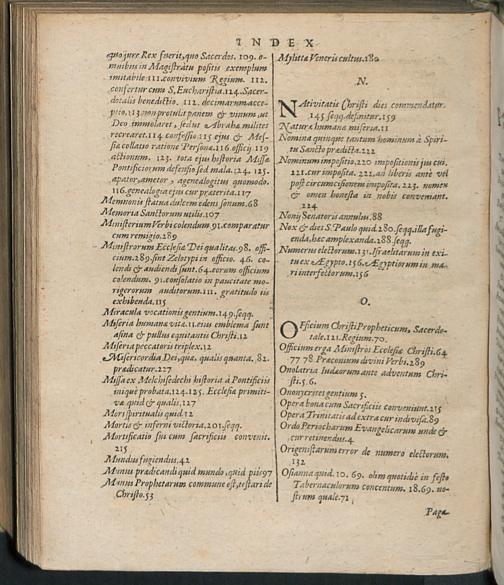 INDEX
quo jure Rex fuerit, quo Sacerdos. 109. o-
mnibus in Magistratu positis exemplum
imitabile 111. convivium Regium. 112.
confertur cum S. Eucharistia. 124. Sacer-
dotalis benedictio. 112. decimarum acce-
ptio. 113. non protulit panem & vinum, ut
Deo immolaret, sed ut Abrahæ milites
recrearet. 114 confessio. 115 ejus & Mes-
siæ collatio ratione Personæ. 116. officij 119
actionum. 123. tota ejus historia Missæ
Pontificiorum defensio sed mala. 124. 125.
apator, ametor, agenealogitus quomodo.
116. genealogia ejus cur præterita. 117
Memnonis statua dulcem edens sonum. 68
Memoria Sanctorum utilis. 107
Ministerium Verbi colendum 91. comparatur
cum remigio. 289
Ministrorum Ecclesiæ Dei qualitas. 98. offi-
cium. 289. sint Zelotypi in officio. 46. co-
lendi & audiendi sunt. 64. eorum officium
colendum. 91. consolatio in paucitate mo-
rigerorum auditorum. 111. gratitudo iis
exhibenda. 115
Miracula vocationis gentium. 149. seqq.
Miseria humanæ vitæ. 11. ejus emblema sunt
asina & pullus equitantis Christi. 12
Miseria peccatoris triplex. 12
Misericordia Dei, quæ, qualis quanta. 82.
prædicatur. 227
Missa ex Melchisedechi historia à Pontificiis
iniquè probata. 124. 125. Ecclesiæ primiti-
væ quid & qualis. 127
Mori spiritualis quid. 12
Mortis & inferni victoria. 201. seqq.
Mortificatio sui cum sacrificiis convenit.
215
Mundus fugiendus. 42
Munus prædicandi quid mundo, quid piis 97
Munus Prophetarum commune est, testari de
Christo. 53
Mylitta Veneris cultus. 180
N.
Nativitatis Christi dies commendatur.
145 seqq. definitur. 159
Naturæ humanæ miseria. 11
Nomina quinque tantum hominum à Spiri-
tu Sancto prædicta. 222
Nominum impositio. 220 impositionis jus cui.
221. cur imposita. 222. an liberis ante vel
post circumcisionem imposita. 223. nomen
& omen honesta in nobis conveniant.
224
Nonij Senatoris annulus. 88
Nox & dies S. Paulo quid 280. seqq. illa fugi-
enda, hæc amplexanda. 288. seqq.
Numerus electorum. 131. Israelitarum in exi-
tu ex Ægypto. 156. Ægyptiorum in ma-
ri interfectorum. 156
O.
Officium Christi Propheticum, Sacerdo-
tale. 121. Regium. 70.
Officium erga Ministros Ecclesiæ Christi. 64
77 78 Præconum divini Verbi. 289
Onolatria Judæorum ante adventum Chri-
sti. 5. 6.
Ononycrites gentium 5.
Opera bona cum Sacrificiis conveniunt. 215
Opera Trinitatis ad extra cur indivisa. 89
Ordo Periocharum Evangelicarum unde &
cur retinendus. 4
Origenistarum error de numero electorum.
132
Osianna quid. 10. 69. olim quotidiè in festo
Tabernaculorum concentum. 18. 69. no-
strum quale. 71
Paga-